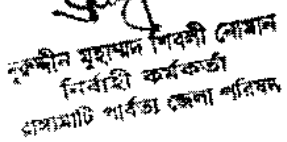 নুরুদ্দীন মুহাম্মদ শিবলী নোমান
নির্বাহী কর্মকর্তা
রাঙ্গামাটি পার্বত্য জেলা পরিষদ